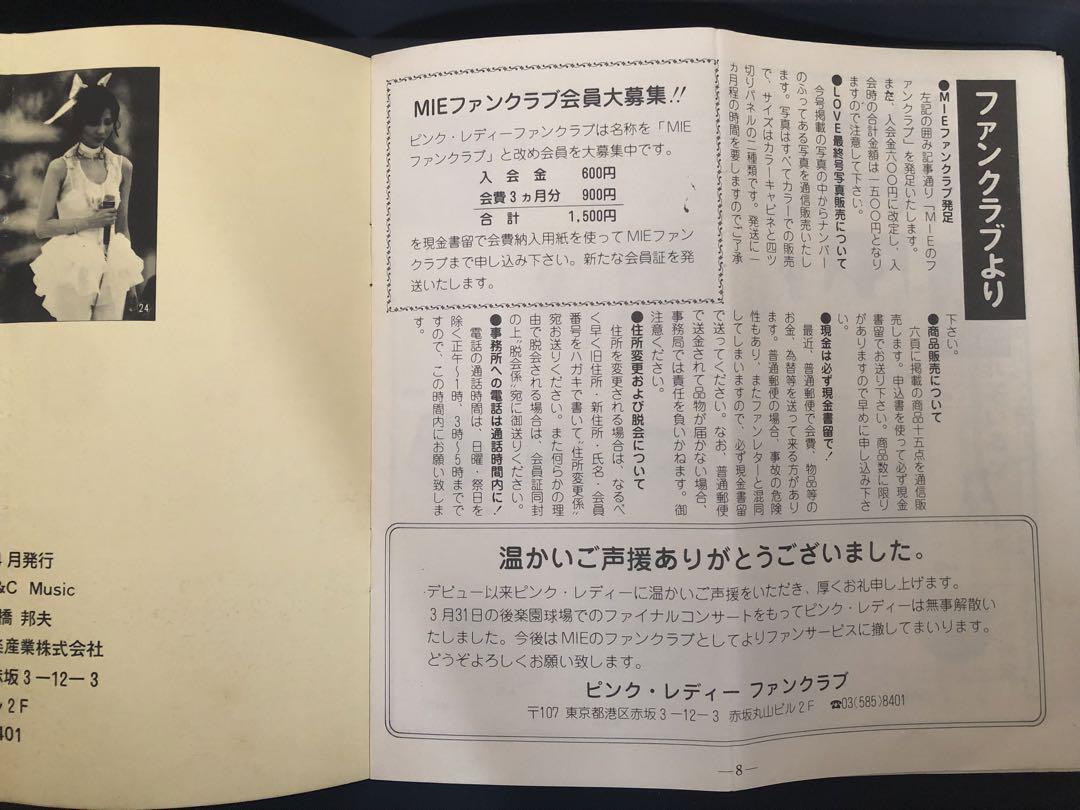 24
4月発行
&C Music
橋 邦夫
産業株式会社
赤坂3−12−3
2F
401
ファンクラブより
●MIEファンクラブ発足
左記の囲み記事通り「MIEのフ
ァンクラブ」を発足いたします。
また、入会金六〇〇円に改定し、入
会時の合計金額は一五〇〇円となり
ますので注意して下さい。
●LOVE最終号写真販売について
今号掲載の写真の中からナンバー
のふってある写真を通信販売いたし
ます。写真はすべてカラーでの販売
で、サイズはカラーキャビネと四ッ
切りパネルの二種類です。発送に一
ヵ月程の時間を要しますのでご了承
MIEファンクラブ会員大募集!!
ピンク・レディーファンクラブは名称を「MIE
ファンクラブ」と改め会員を大募集中です。
入会金 600円
会費3ヵ月分 900円
合計 1,500円
を現金書留で会費納入用紙を使ってMIEファン
クラブまで申し込み下さい。新たな会員証を発
送いたします。
下さい。
●商品販売について
六頁に掲載の商品十五点を通信販
売します。申込書を使って必ず現金
書留でお送り下さい。商品数に限り
がありますので早めに申し込み下さ
い。
●現金は必ず現金書留で!
最近、普通郵便で会費、物品等の
お金、為替等を送って来る方があり
ます。普通郵便の場合、事故の危険
性もあり、またファンレターと混同
してしまいますので、必ず現金書留
で送ってください。なお、普通郵便
で送金されて品物が届かない場合、
事務局では責任を負いかねます。御
注意ください。
●住所変更および脱会について
住所を変更される場合は、なるべ
く早く旧住所・新住所・氏名・会員
番号をハガキで書いて〝住所変更係〟
宛お送りください。また何らかの理
由で脱会される場合は、会員証同封
の上〝脱会係〟宛に御送りください。
●事務所への電話は通話時間内に!
電話の通話時間は、日曜・祭日を
除く正午〜1時、3時〜5時までで
すので、この時間内にお願い致しま
す。
温かいご声援ありがとうございました。
デビュー以来ピンク・レディーに温かいご声援をいただき、厚くお礼申し上げます。
3月31日の後楽園球場でのファイナルコンサートをもってピンク・レディーは無事解散い
たしました。今後はMIEのファンクラブとしてよりファンサービスに撤してまいります。
どうぞよろしくお願い致します。
ピンク・レディー ファンクラブ
〒107 東京都港区赤坂3−12−3 赤坂丸山ビル2F ☎03(585)8401
—8—